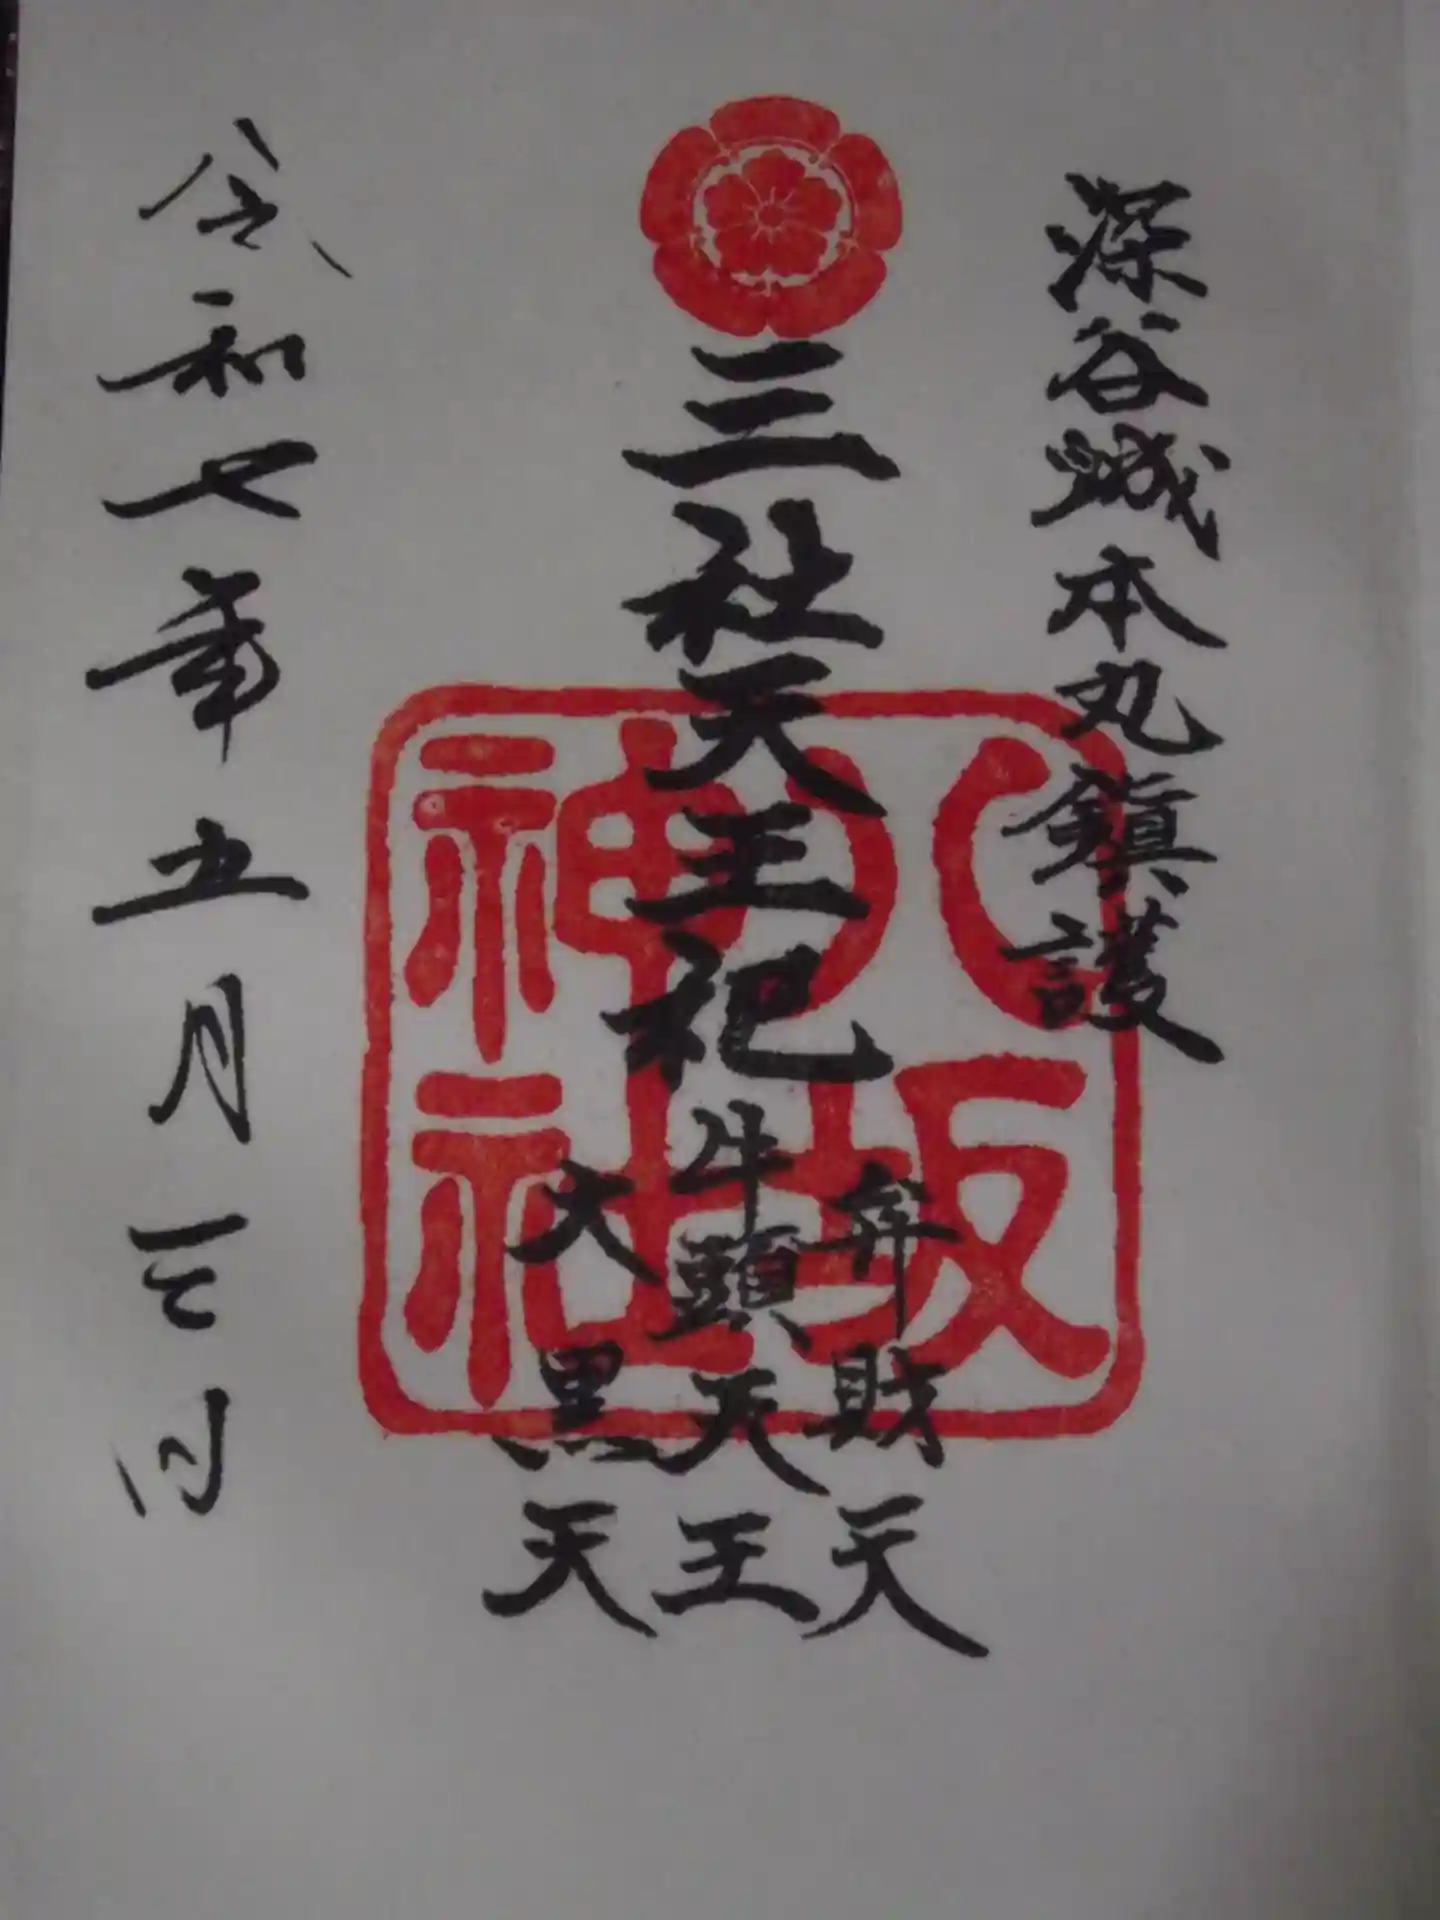 深谷城本丸鎮護
三社天王祀
弁財天
牛頭天王
大黒天
八坂
神社
令和七年五月三日